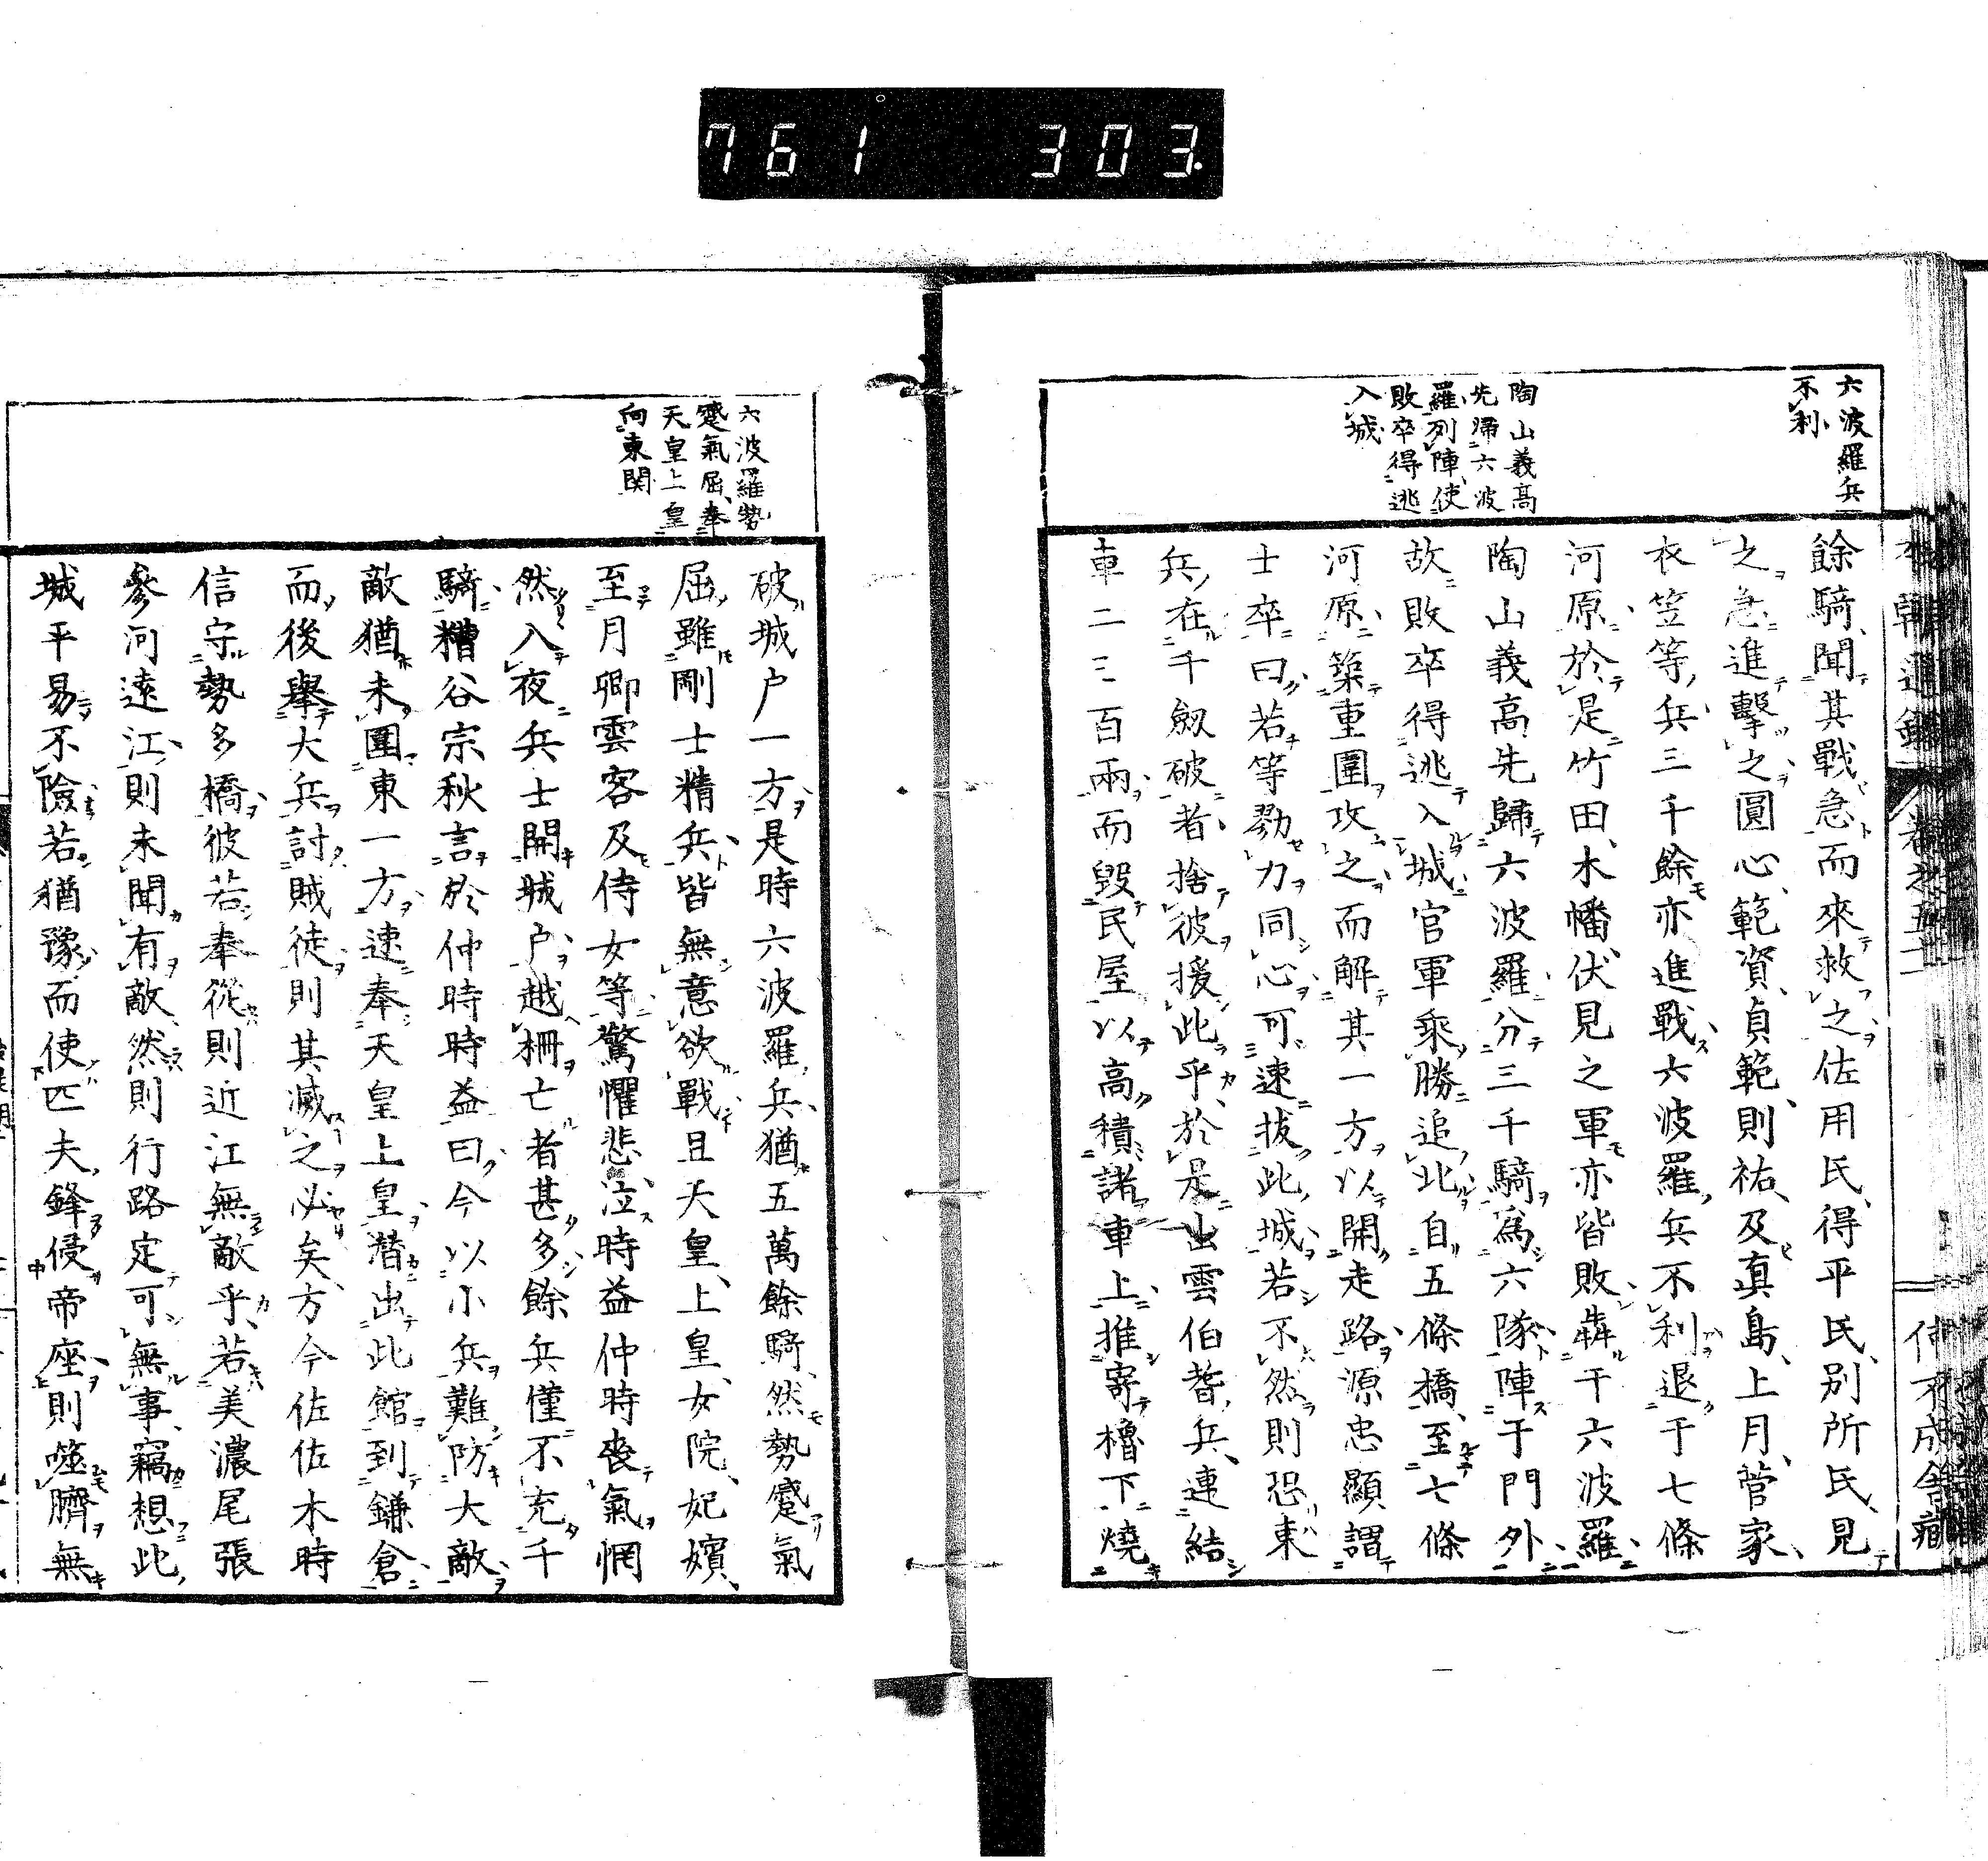 761 303
六波羅兵
不利
陶山義高
先歸六波
羅列陣使
敗卒得逃
入城
餘騎聞其戰急而來救之佐用氏得平氏別所氏見
之急進擊之圓心範資貞範則祐及眞島上月菅家
衣笠等兵三千餘亦進戰六波羅兵不利退于七條
河原於是竹田木幡伏見之軍亦皆敗犇于六波羅
陶山義高先歸六波羅分三千騎爲六隊陣于門外
故敗卒得逃入城官軍乘勝追北自五條橋至七條
河原築重圍攻之而解其一方以開走路源忠顯謂
士卒曰若等勠力同心可速拔此城若不然則恐東
兵在千劔破者捨彼援此乎於是出雲伯耆兵連結
車二三百兩而毀民屋以高積諸車上推寄櫓下燒
六波羅勢
蹙氣屈奉
天皇上皇
向東関
破城户一方是時六波羅兵猶五萬餘騎然勢蹙氣
屈雖剛士精兵皆無意欲戰且天皇上皇女院妃嬪
至月卿雲客及侍女等驚懼悲泣時益仲時喪氣惘
然入夜兵士開城户越柵亡者甚多餘兵僅不充千
騎糟谷宗秋言於仲時時益曰今以小兵難防大敵
敵猶未圍東一方速奉天皇上皇潛出此館到鎌倉
而後舉大兵討賊徒則其滅之必矣方今佐佐木時
信守勢多橋彼若奉從則近江無敵乎若美濃尾張
參河遠江則未聞有敵然則行路定可無事竊想此
城平易不險若猶豫而使匹夫鋒侵帝座則噬臍無